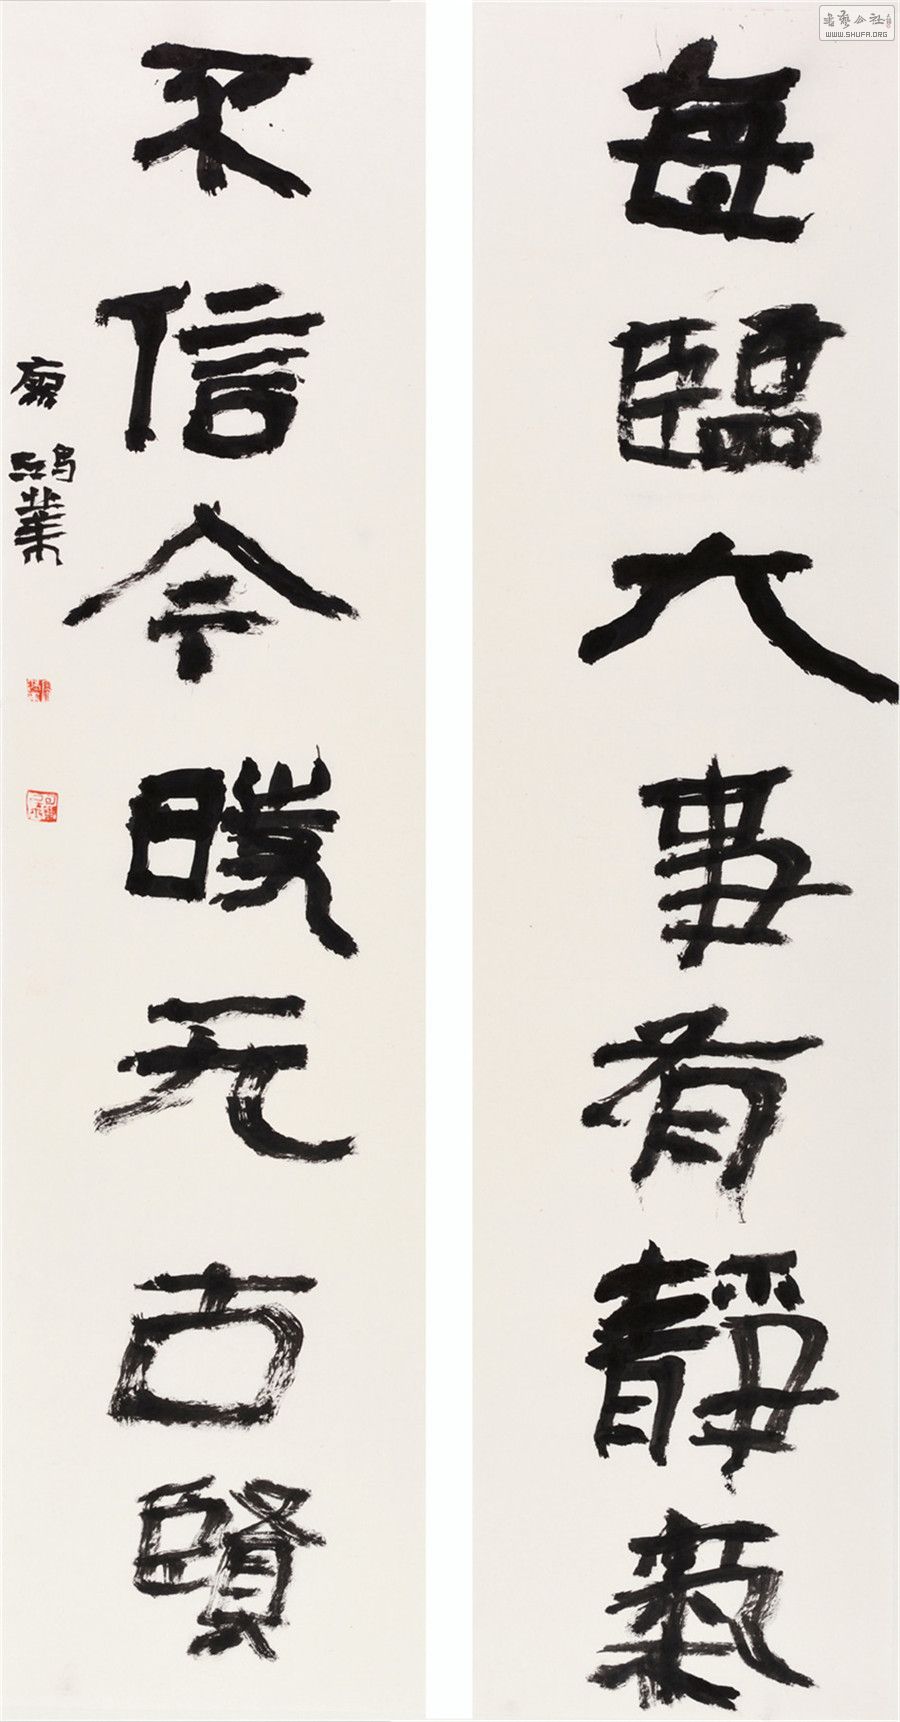 每臨大事有靜氣
不信今時无古賢
鴻業
書藝公社
WWW.SHUFA.ORG